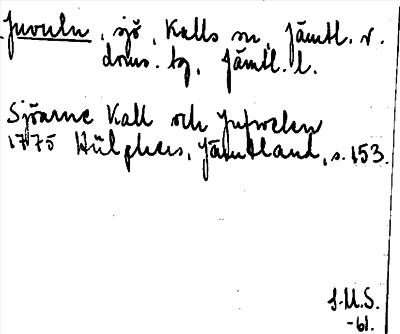 Juvuln, sjö, Kalls sn, Jämtl. v.
doms. tg, Jämtl. l.
Sjöarne Kall och Jufveln
1775 Hülphers, Jämtland, s. 153.
J.M.S.
-61.